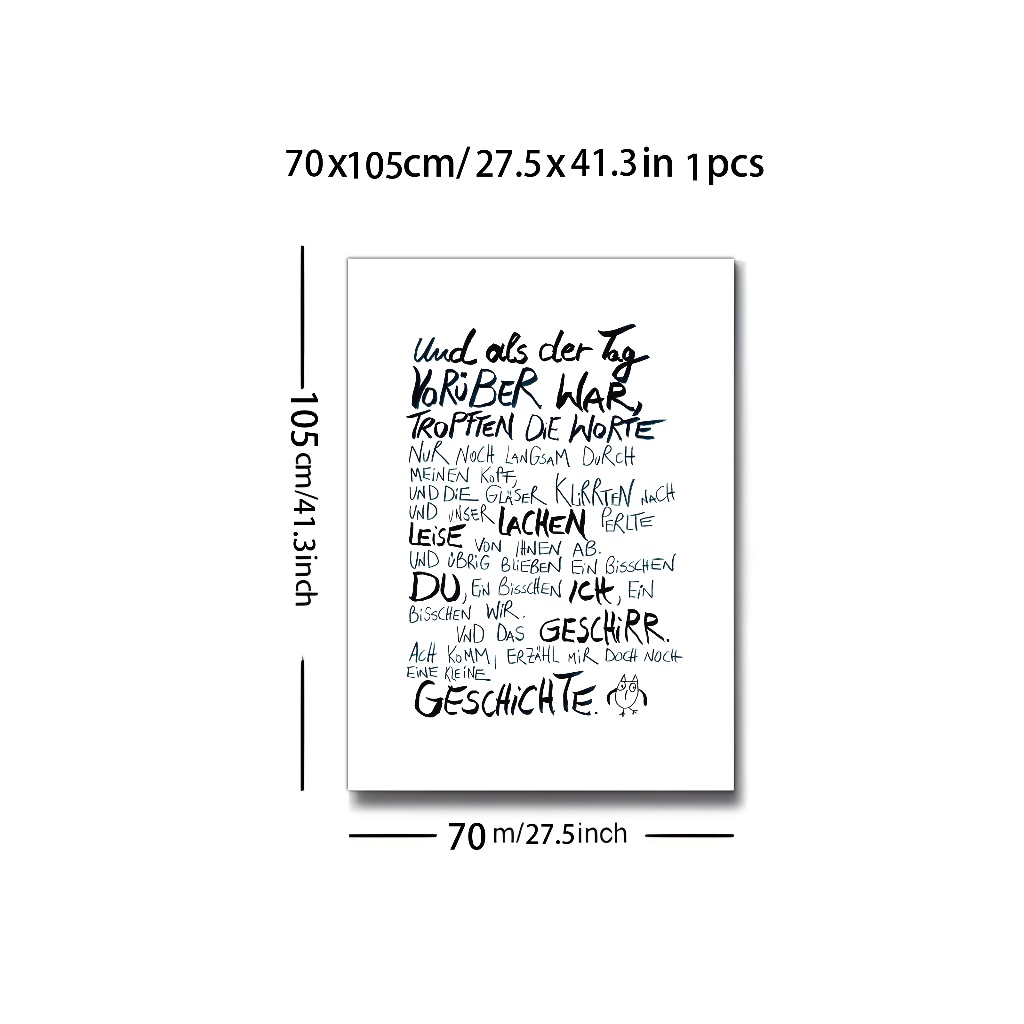 70x105cm/27.5x41.3in 1pcs
105cm/41.3inch
Und als der Tag
VORÜBER WAR,
TROPFTEN DIE WORTE
NUR NOCH LANGSAM DURCH
MEINEN KOPF,
UND DIE GLÄSER KLIRRTEN NACH
UND UNSER LACHEN PERLTE
LEISE VON IHNEN AB.
UND ÜBRIG BLIEBEN EIN BISSCHEN
DU, EIN BISSCHEN ICH, EIN
BISSCHEN WIR.
UND DAS GESCHIRR.
ACH KOMM, ERZÄHL MIR DOCH NOCH
EINE KLEINE
GESCHICHTE.
70 m/27.5inch